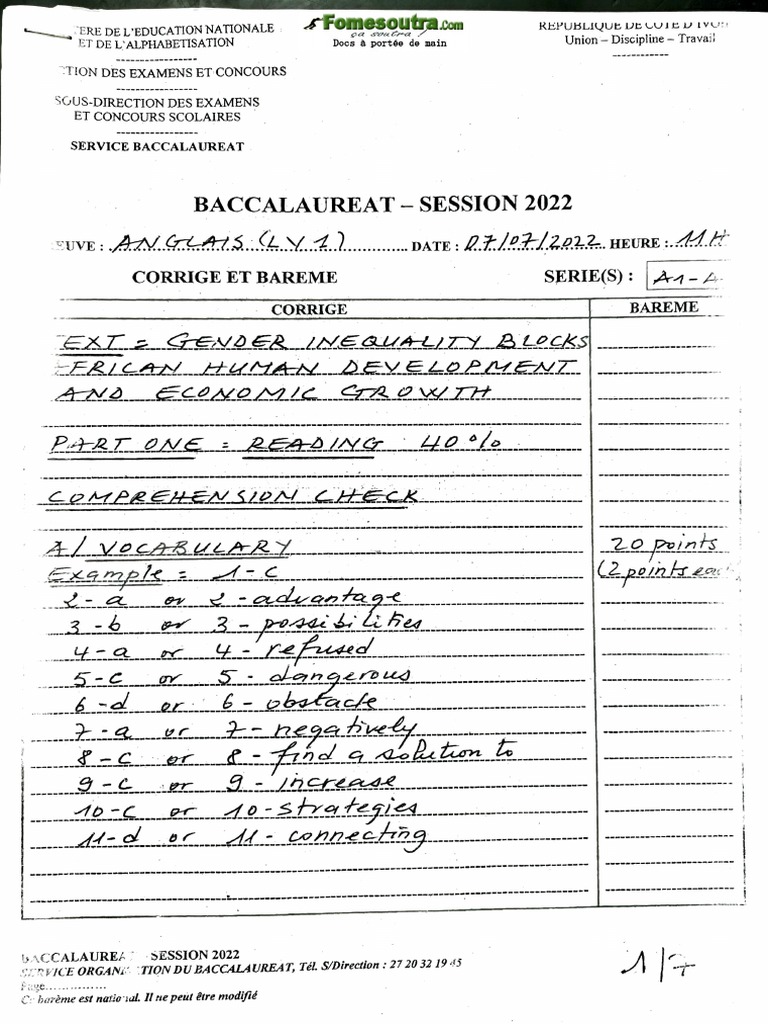 TERE DE L'EDUCATION NATIONALE
ET DE L'ALPHABETISATION
-----------------
TION DES EXAMENS ET CONCOURS
-----------------
SOUS-DIRECTION DES EXAMENS
ET CONCOURS SCOLAIRES
-----------------
SERVICE BACCALAUREAT
Fomesoutra.com
ça soutra !
Docs à portée de main
REPUBLIQUE DE COTE D'IVOI
Union – Discipline – Travail
------------
BACCALAUREAT – SESSION 2022
EUVE : ANGLAIS (LV1) DATE : 07/07/2022 HEURE : 11H
CORRIGE ET BAREME SERIE(S) : A1-A
CORRIGE BAREME
EXT = GENDER INEQUALITY BLOCKS
FRICAN HUMAN DEVELOPMENT
AND ECONOMIC GROWTH
PART ONE = READING 40%
COMPREHENSION CHECK
A/ VOCABULARY 20 points
Example = 1-c (2 points eac
2-a or 2-advantage
3-b or 3-possibilities
4-a or 4-refused
5-c or 5-dangerous
6-d or 6-obstacle
7-a or 7-negatively
8-c or 8-find a solution to
9-c or 9-increase
10-c or 10-strategies
11-d or 11-connecting
BACCALAUREA SESSION 2022
SERVICE ORGAN TION DU BACCALAUREAT, Tél. S/Direction : 27 20 32 19 45
Page...............
Ce barème est national. Il ne peut être modifié
1/7